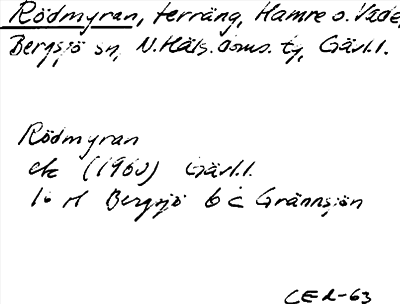 Rödmyran, terräng, Hamre o. Vade,
Bergsjö sn, N. Häls. doms. tg, Gävl.l.
Rödmyran
ek (1960) Gävl.l.
16 H Bergsjö 6 c Grännsjön
CEL-63